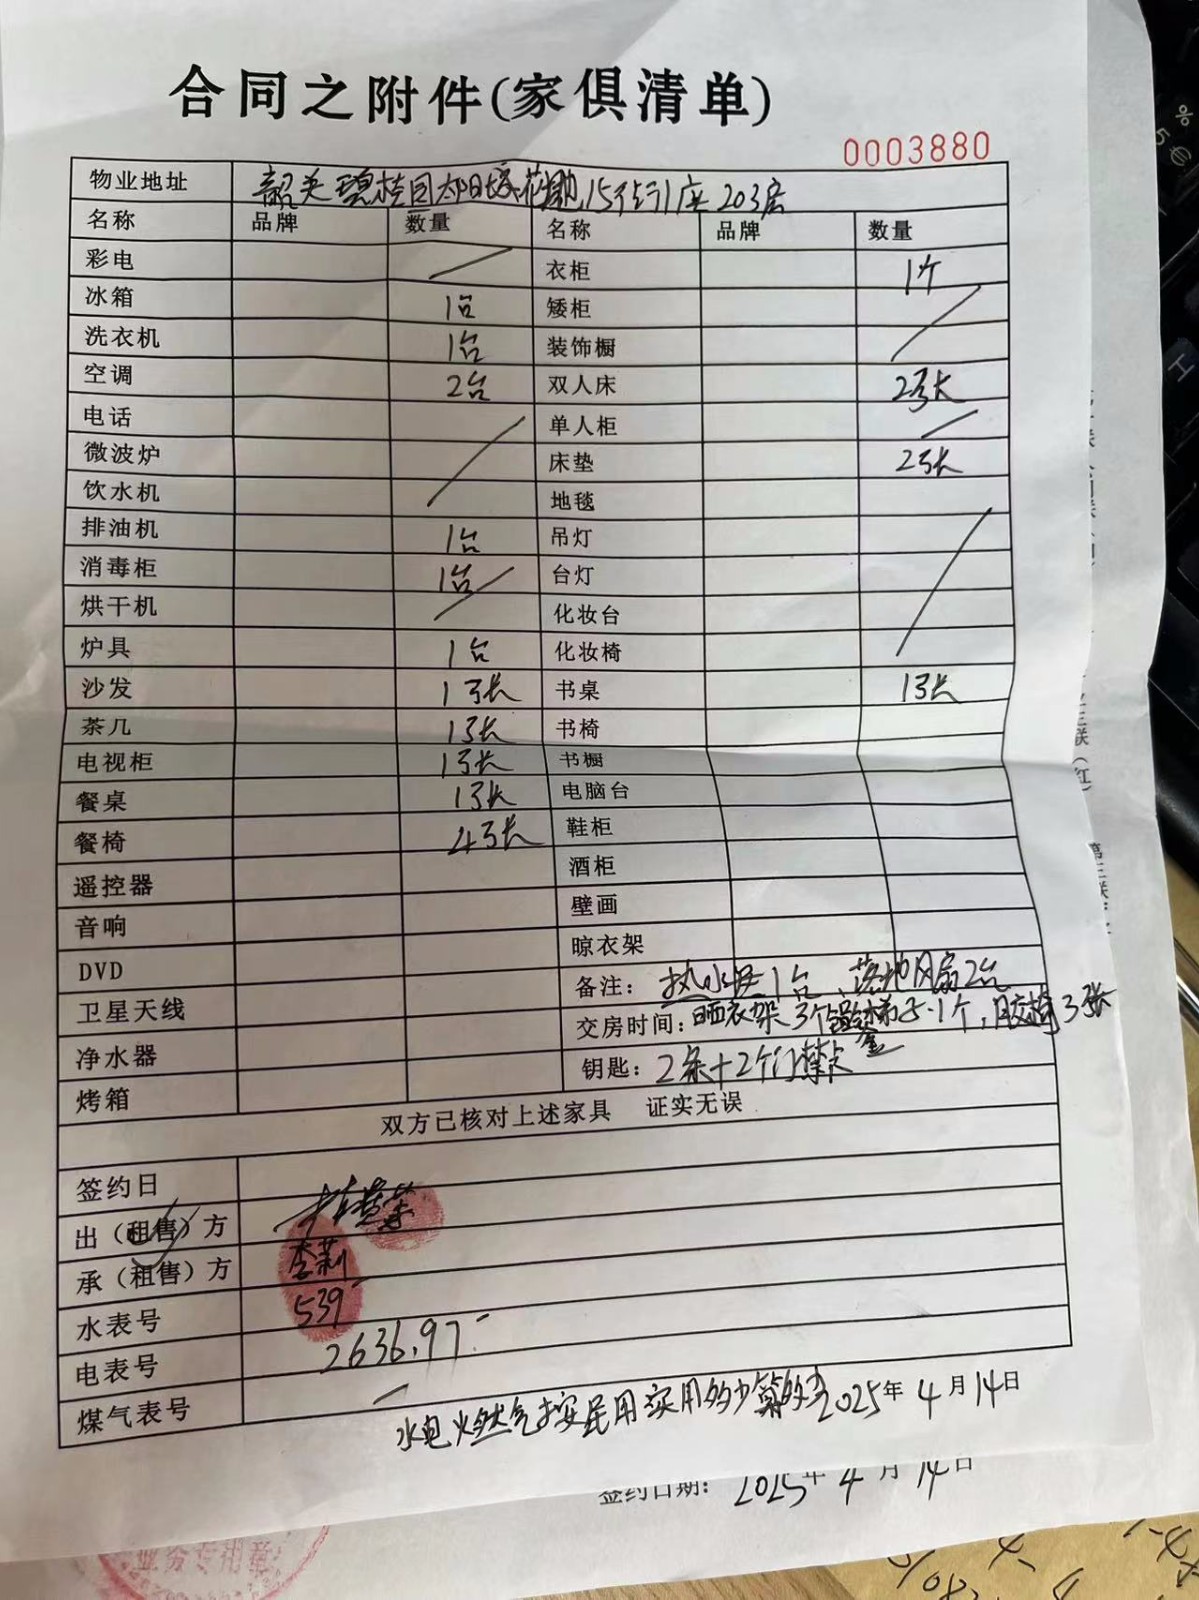 合同之附件(家俱清单)
0003880
物业地址 韶关碧桂园太阳城花 15街1座203房
名称 品牌 数量 名称 品牌 数量
彩电 衣柜 1个
冰箱 1台 矮柜
洗衣机 1台 装饰橱
空调 2台 双人床 2张
电话 单人柜
微波炉 床垫 2张
饮水机 地毯
排油机 1台 吊灯
消毒柜 1台 台灯
烘干机 化妆台
炉具 1台 化妆椅
沙发 1张 书桌 1张
茶几 1张 书椅
电视柜 1张 书橱
餐桌 1张 电脑台
餐椅 4张 鞋柜
遥控器 酒柜
音响 壁画
DVD 晾衣架
卫星天线 备注: 热水器1台、落地风扇2台
净水器 交房时间: 晒衣架3个 梯子1个,胶椅3张
烤箱 钥匙: 2条+2个门禁卡
双方已核对上述家具 证实无误
签约日
出(租售)方
承(租售)方 李莉
水表号 539
电表号 2636.97
煤气表号
水电燃气按民用实用多少算多少 2025年4月14日
签约日期: 2025年4月14日
业务专用章